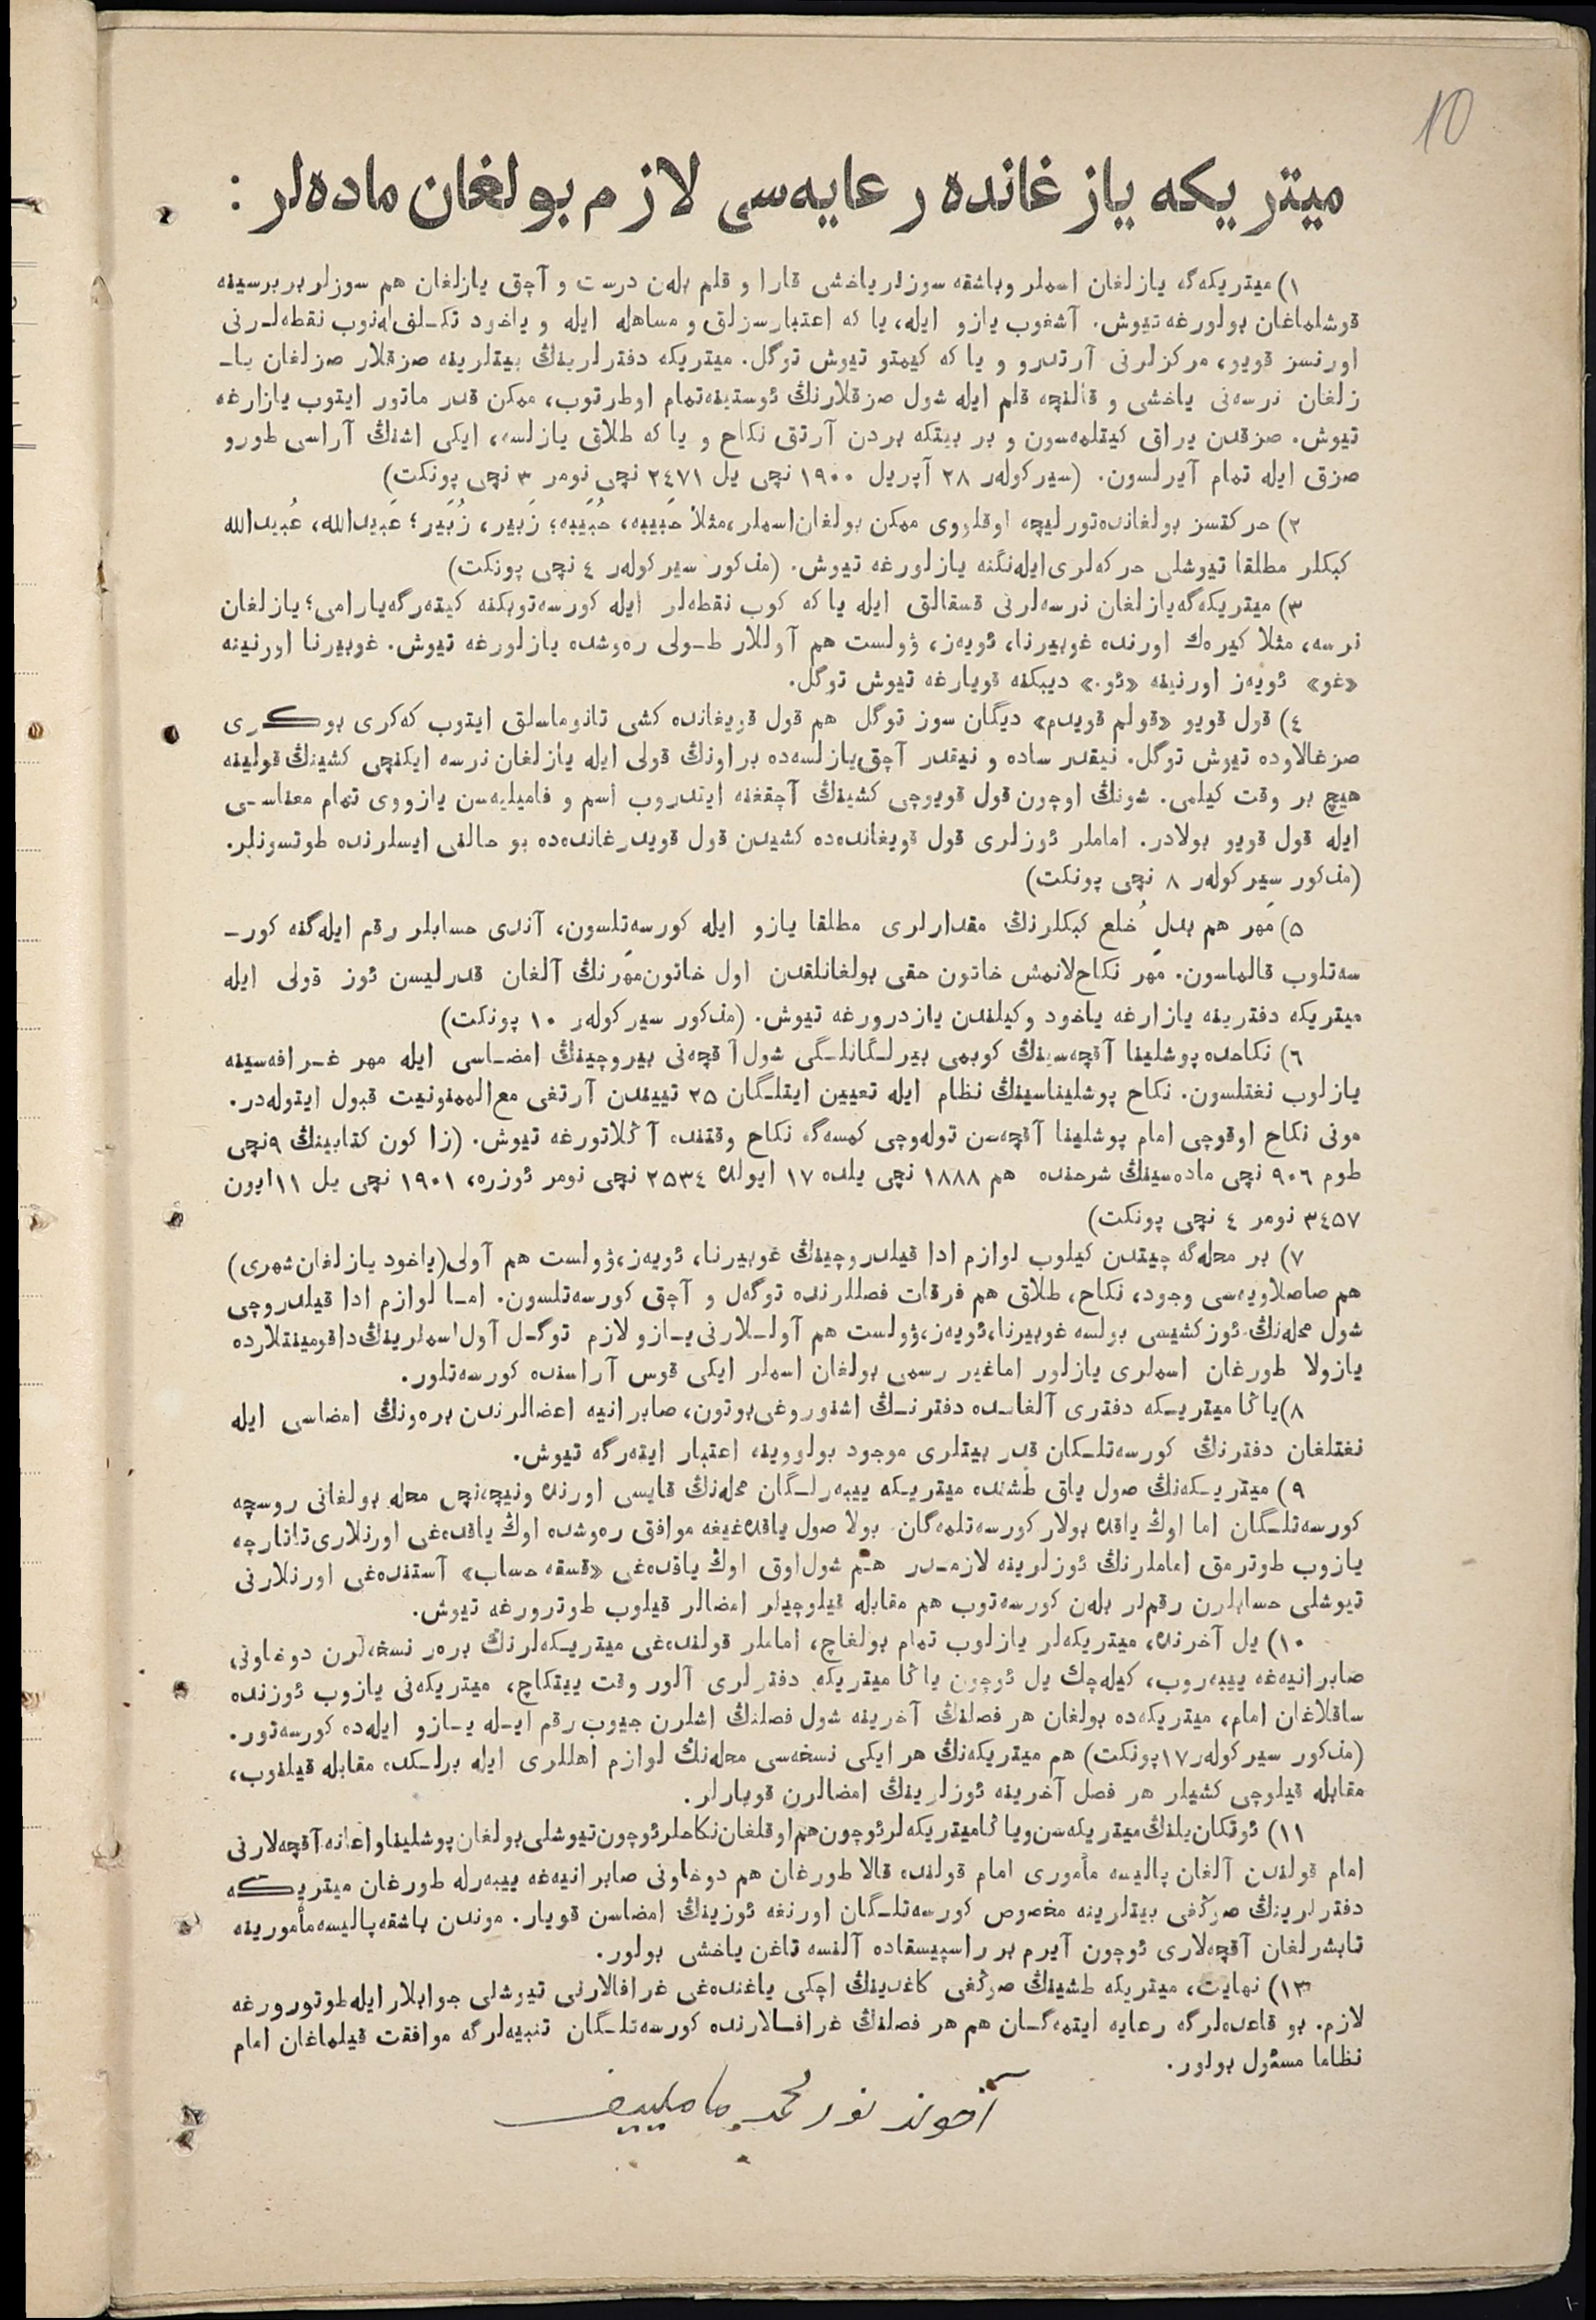 10
ميتريكه يازغانده رعايه‌سى لازم بولغان ماده‌لر :
١) ميتريكه‌گه يازلغان اسملر وباشقه سوزلر ياخشى قارا و قلم بله‌ن درست و آچق يازلغان هم سوزلر بربرسينه
قوشلماغان بولورغه تيوش. آشغوب يازو ايله، يا كه اعتبارسزلق و مساهله ايله و ياخود تكـلف له‌نوب نقطه‌لـرنى
اورنسز قويو، مركزلرنى آرتدرو و يا كه كيمتو تيوش توگل. ميتريكه دفترلرينڭ بيتلرينه صزقلار صزلغان ياـ
زلغان نرسه‌نى ياخشى و قالنچه قلم ايله شول صزقلارنڭ ئوستينه تمام اوطرتوب، ممكن قدر ماتور ايتوب يازارغه
تيوش. صزقدن يراق كيتلمه‌سون و بر بيتكه بردن آرتق نكاح و يا كه طلاق يازلسه، ايكى اشنڭ آراسى طورو
صزق ايله تمام آيرلسون. (سيركولەر ٢٨ آپريل ١٩٠٠ نچى يل ٢٤٧١ نچى نومر ٣ نچى پونكت)
٢) حركتسز بولغانده تورليچه اوقلووى ممكن بولغان اسملر، مثلا حَبيبه، حُبَيبه؛ زَبير، زُبَير؛ عَبيدالله، عُبيدالله
كبكلر مطلقا تيوشلى حركه‌لرى ايله‌نگنه يازلورغه تيوش. (مذكور سيركولەر ٤ نچى پونكت)
٣) ميتريكه‌گه يازلغان نرسه‌لرنى قسقالق ايله يا كه كوب نقطه‌لر ايله كورسه‌توبكنه كيته‌رگه يارامى؛ يازلغان
نرسه، مثلا كيره‌ك اورنده غوبيرنا، ئويه‌ز، ۋولست هم آوللار طـولى ره‌وشده يازلورغه تيوش. غوبيرنا اورنينه
«غو» ئويه‌ز اورنينه «ئو.» ديبكنه قويارغه تيوش توگل.
٤) قول قويو «قولم قويدم» ديگان سوز توگل هم قول قويغانده كشى تانوماسلق ايتوب كه‌كرى بوكـرى
صزغالاوده تيوش توگل. نيقدر ساده و نيقدر آچق يازلسه‌ده براونڭ قولى ايله يازلغان نرسه ايكنچى كشينڭ قولينه
هيچ بر وقت كيلمى. شونڭ اوچون قول قويوچى كشينڭ آچقغنه ايتدروب اسم و فاميليه‌سن يازووى تمام معناسـى
ايله قول قويو بولادر. اماملر ئوزلرى قول قويغانده‌ده كشيدن قول قويدرغانده‌ده بو حالنى ايسلرنده طوتسونلر.
(مذكور سيركولەر ٨ نچى پونكت)
٥) مَهر هم بدلِ خُلع كبكلرنڭ مقدارلرى مطلقا يازو ايله كورسه‌تلسون، آندى حسابلر رقم ايله‌گنه كورـ
سه‌تلوب قالماسون. مَهر نكاحلانمش خاتون حقى بولغانلقدن اول خاتون مَهرنڭ آلغان قدرليسن ئوز قولى ايله
ميتريكه دفترينه يازارغه ياخود وكيلندن يازدرورغه تيوش. (مذكور سيركولەر ١٠ پونكت)
٦) نكاحده پوشلينا آقچه‌سينڭ كوبمى بيرلـگانلـگى شول آقچه‌نى بيروچينڭ امضـاسى ايله مهر غـرافه‌سينه
يازلوب نغتلسون. نكاح پوشليناسينڭ نظام ايله تعيين ايتلـگان ٢٥ تييندن آرتغى مع‌الممنونيت قبول ايتوله‌در.
مونى نكاح اوقوچى امام پوشلينا آقچه‌سن توله‌وچى كمسه‌گه نكاح وقتنده آڭلاتورغه تيوش. (زاكون كتابينڭ ٩نچى
طوم ٩٠٦ نچى ماده‌سينڭ شرحنده هم ١٨٨٨ نچى يلده ١٧ ايولده ٢٥٣٤ نچى نومر ئوزره، ١٩٠١ نچى يل ١١ايون
٣٤٥٧ نومر ٤ نچى پونكت)
٧) بر محله‌گه چيتدن كيلوب لوازم ادا قيلدروچينڭ غوبيرنا، ئويه‌ز، ۋولست هم آولى(ياخود يازلغان شهرى)
هم صاصلاويه‌سى وجود، نكاح، طلاق هم فرقات فصللرنده توگه‌ل و آچق كورسه‌تلسون. امـا لوازم ادا قيلدروچى
شول محله‌نڭ ئوز كشيسى بولسه غوبيرنا، ئويه‌ز، ۋولست هم آولـلارنى يـازو لازم توگـل آول اسملرينڭ داقومينتلارده
يازولا طورغان اسملرى يازلور اماغير رسمى بولغان اسملر ايكى قوس آراسنده كورسه‌تلور.
٨)ياڭا ميتريـكه دفترى آلغانـده دفترنـڭ اشنوروغى بوتون، صابرانيه اعضالرندن بره‌ونڭ امضاسى ايله
نغتلغان دفترنڭ كورسه‌تلـكان قدر بيتلرى موجود بولووينه اعتبار ايته‌رگه تيوش.
٩) ميتريـكه‌نڭ صول ياق طشنده ميتريـكه ييبه‌رلـگان محله‌نڭ قايسى اورنده ونيچه‌نچى محله بولغانى روسچه
كورسه‌تلـگان اما اوڭ ياقده بولار كورسه‌تلمه‌گان. بولا صول ياقده‌غيغه موافق ره‌وشده اوڭ ياقده‌غى اورنلارى تاتارچه
يازوب طوترمق اماملرنڭ ئوزلرينه لازمـدر هـم شول اوق اوڭ ياقده‌غى «قسقه حساب» آستنده‌غى اورنلارنى
تيوشلى حسابلرن رقملر بله‌ن كورسه‌توب هم مقابله قيلوچيلر امضالر قيلوب طوترورغه تيوش.
١٠) يل آخرنده، ميتريكه‌لر يازلوب تمام بولغاچ، اماملر قولنده‌غى ميتريـكه‌لرنڭ بره‌ر نسخه‌لرن دوخاونى
صابرانيه‌غه ييبه‌روب، كيله‌چك يل ئوچون ياڭا ميتريكه دفترلرى آلور وقت ييتكاچ، ميتريكه‌نى يازوب ئوزنده
ساقلاغان امام، ميتريكه‌ده بولغان هر فصلنڭ آخرينه شول فصلنڭ اشلرن جيوب رقم ايـله يـازو ايله‌ده كورسه‌تور.
(مذكور سيركولەر ١٧پونكت) هم ميتريكه‌نڭ هر ايكى نسخه‌سى محله‌نڭ لوازم اهللرى ايله برلـكده مقابله قيلنوب،
مقابله قيلوچى كشيلر هر فصل آخرينه ئوزلرينڭ امضالرن قويارلر.
١١) ئوتكان يلنڭ ميتريكه‌سن وياڭا ميتريكه‌لر ئوچون هم اوقلغان نكاحلر ئوچون تيوشلى بولغان پوشلينا و اعانه آقچه‌لارنى
امام قولندن آلغان پاليسه مأمورى امام قولنده قالا طورغان هم دوخاونى صابرانيه‌غه ييبه‌رله طورغان ميتريكـه
دفترلرينڭ صوڭغى بيتلرينه مخصوص كورسه‌تلـگان اورنغه ئوزينڭ امضاسن قويار. موندن باشقه پاليسه مأمورينه
تابشرلغان آقچه‌لارى ئوچون آيرم بر راسپيسقاده آلنسه تاغن ياخشى بولور.
١٣) نهايت، ميتريكه طشينڭ صوڭغى كاغدينڭ اچكى ياغنده‌غى غرافالارنى تيوشلى جوابلار ايله طوتورورغه
لازم. بو قاعده‌لرگه رعايه ايتمه‌گـان هم هر فصلنڭ غرافـالارنده كورسه‌تلـگان تنبيه‌لرگه موافقت قيلماغان امام
نظاما مسئول بولور.
آخوند نورمحمد مامليييف